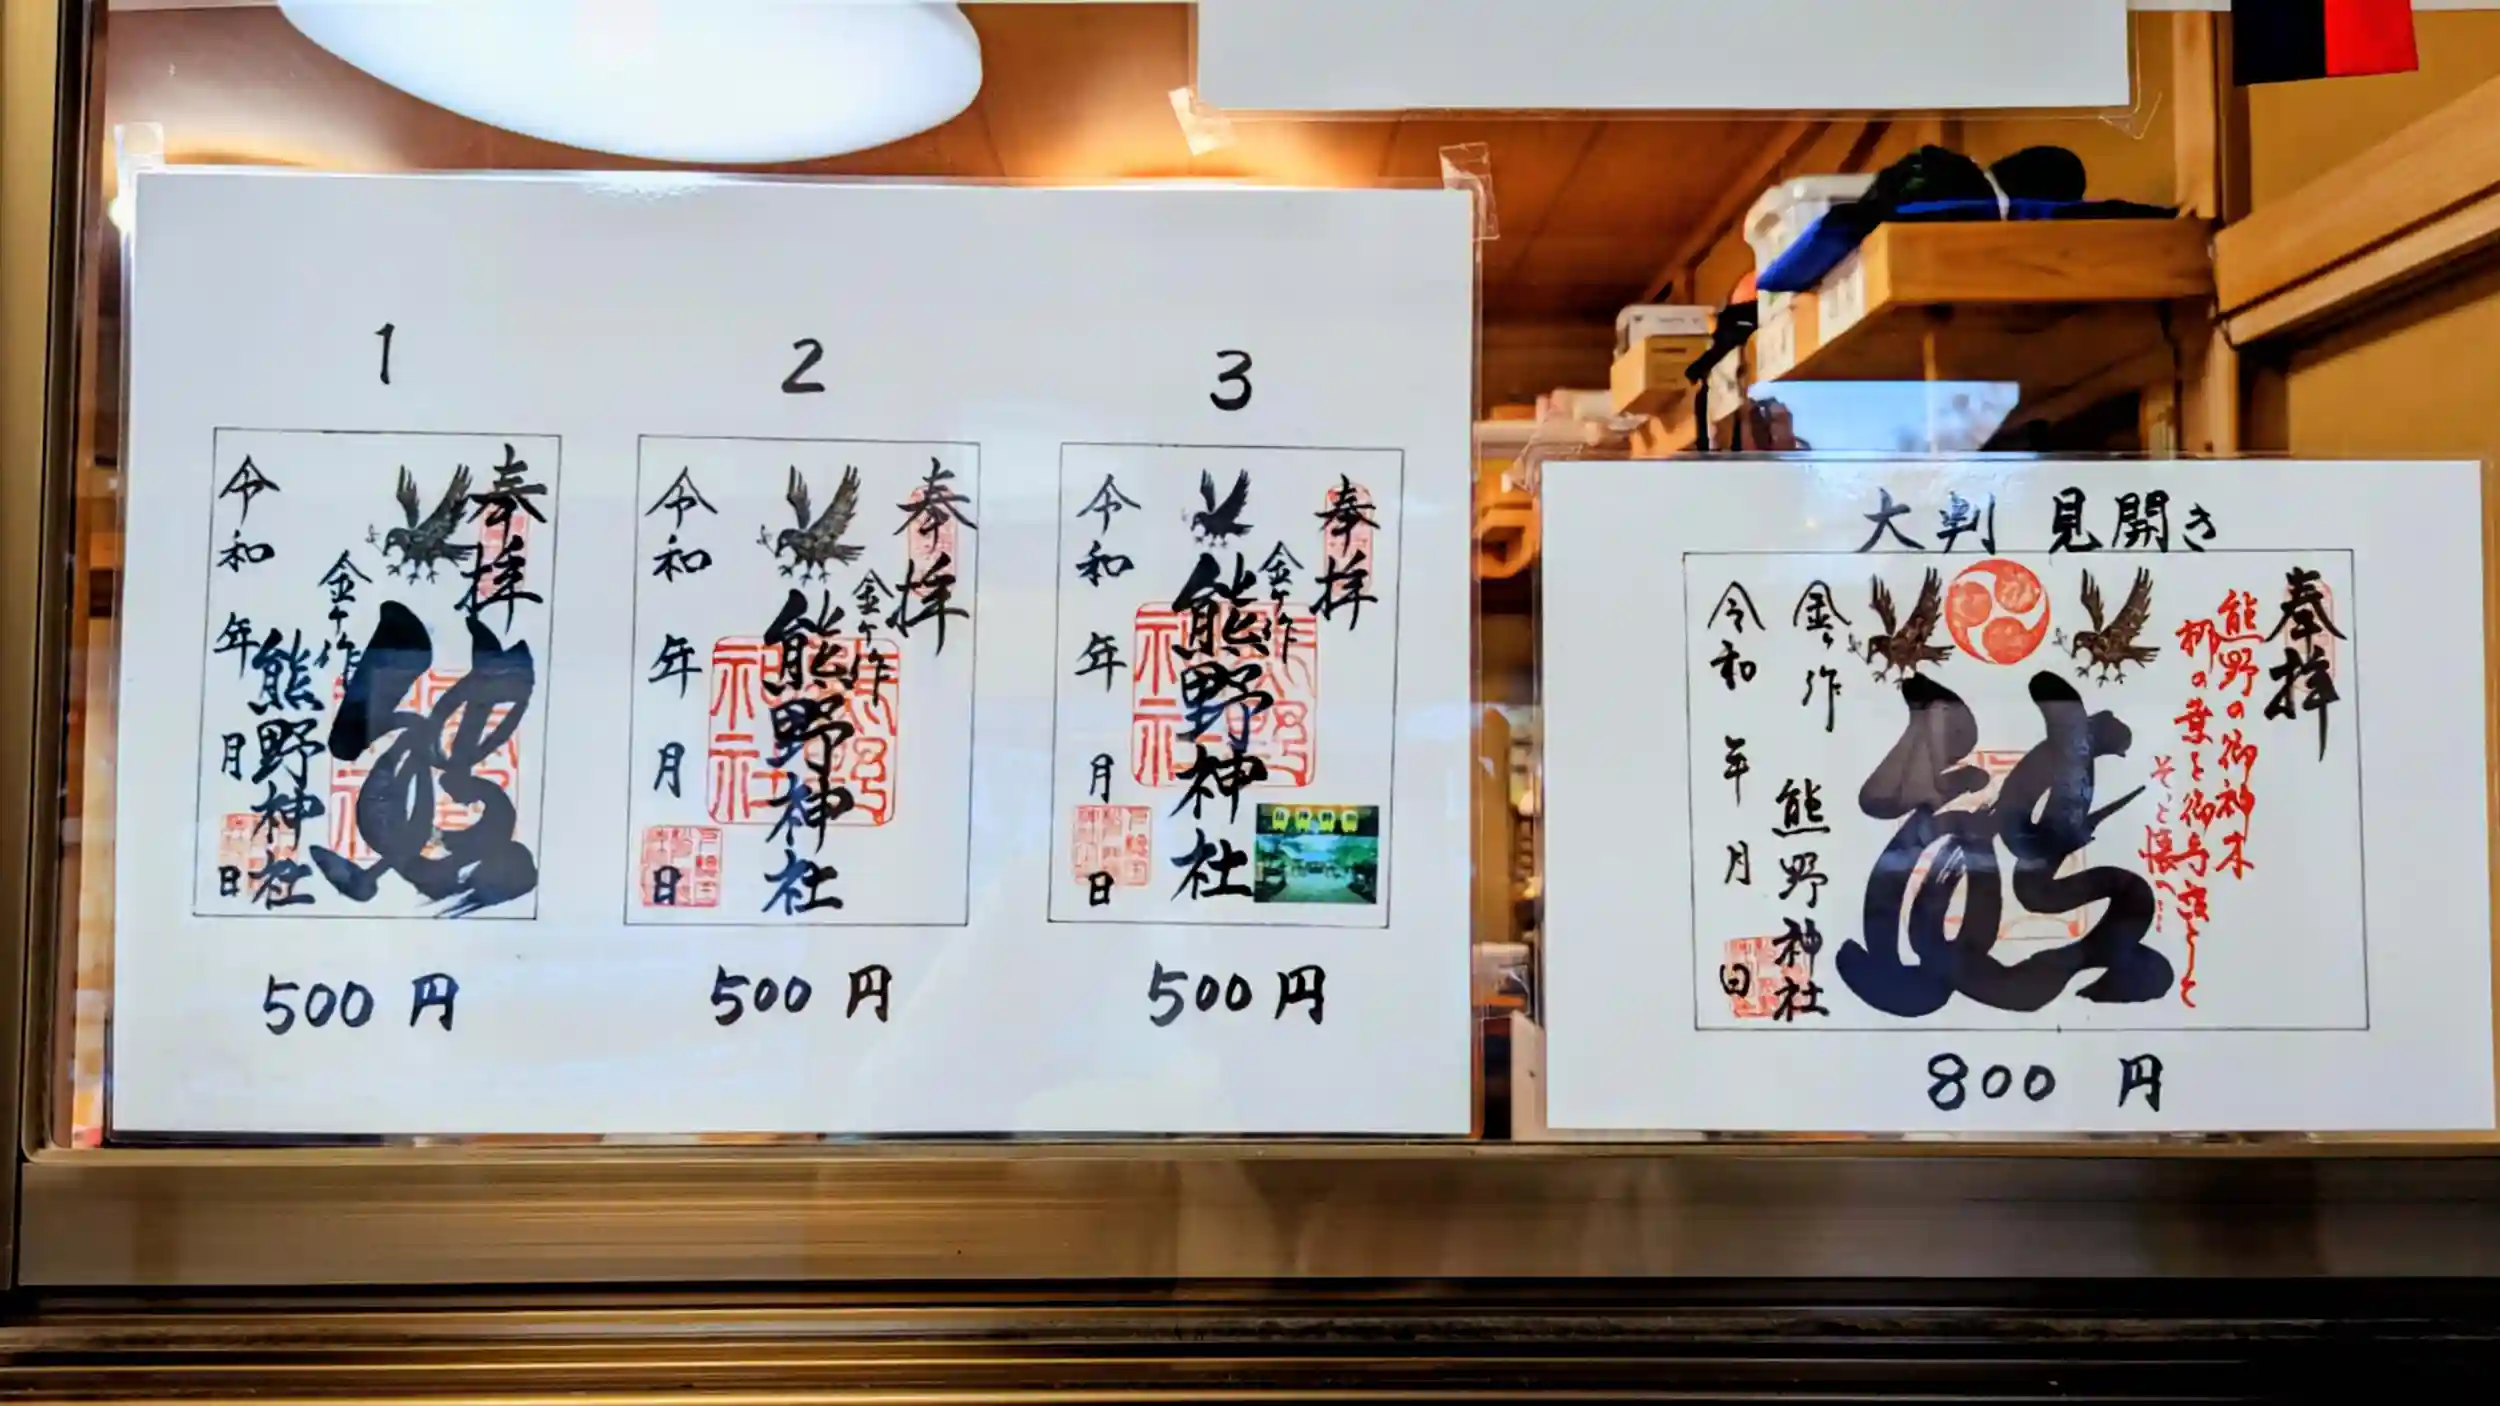 1
奉拝
金ヶ作
熊
熊野神社
令和 年 月 日
500円
2
奉拝
金ヶ作
熊野神社
令和 年 月 日
500円
3
奉拝
金ヶ作
熊野神社
令和 年 月 日
500円
大判 見開き
奉拝
熊野の御神木
梛の葉を御守度として
そっと懐へ…
熊
金ヶ作 熊野神社
令和 年 月 日
800円